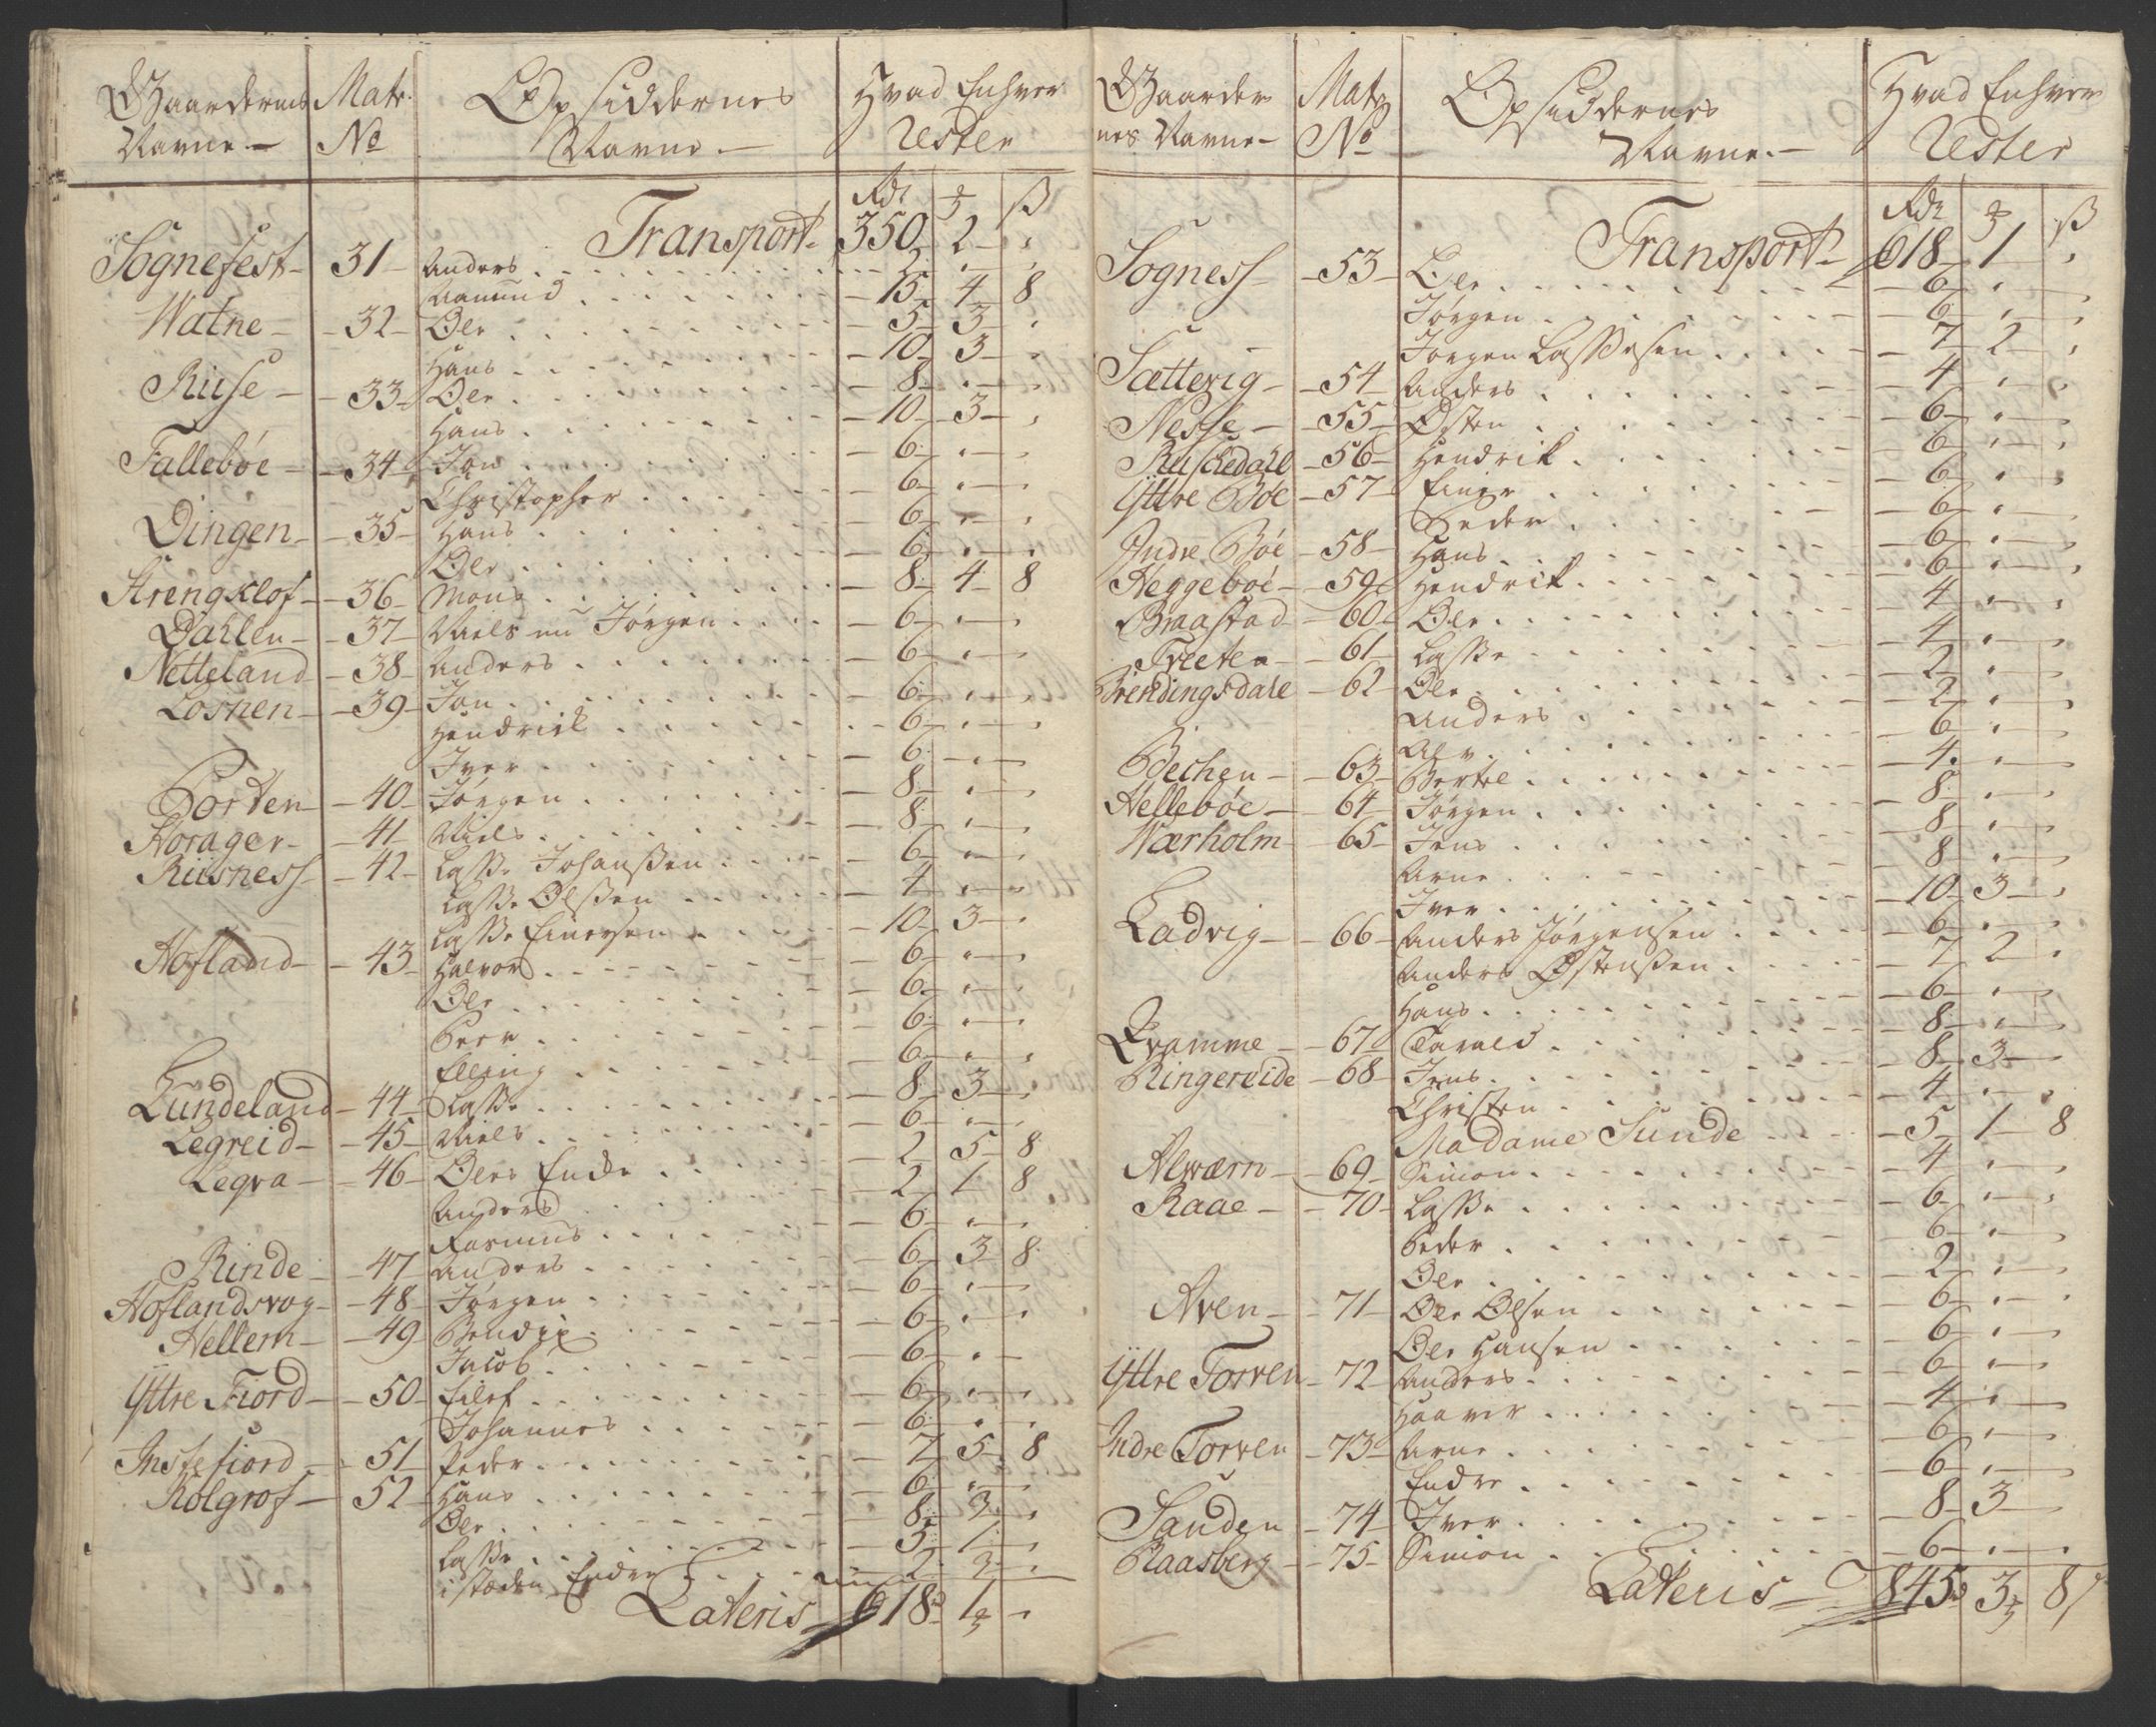 Gaardernes Navne — | Matr. No | Opsiddernes Navne — | Hvad Enhver Rester
Rdr | ₰ | ß
Transport 350 2 "
Sognefest — 31 — Anders . . . 5 " "
Aamund . . . 15 4 8
Watne — 32 — Ole . . . 5 3 "
Hans . . . 10 3 "
Riise — 33 — Ole . . . 8 " "
Hans . . . 10 3 "
Fallebøe — 34 — Jon . . . 6 " "
Christopher . . . 6 " "
Dingen — 35 — Hans . . . 6 " "
Ole . . . 6 " "
Strengklof — 36 — Mons . . . 8 4 8
Dahlen — 37 — Niels nu Jørgen . . . 6 " "
Netteland — 38 — Anders . . . 6 " "
Losnen — 39 — Jon . . . 6 " "
Hendrick . . . 6 " "
Iver . . . 6 " "
Porten — 40 — Jørgen . . . 8 " "
Horager — 41 — Niels . . . 8 " "
Riisness — 42 — Lasse Johanßen . . . 6 " "
Lasse Olßen . . . 4 " "
Lasse Einersen . . . 10 3 "
Hofland — 43 — Halvor . . . 6 " "
Ole . . . 6 " "
Peer . . . 6 " "
Elling . . . 6 " "
Lundeland — 44 — Lasse . . . 8 3 "
Legreid — 45 — Niels . . . 6 " "
Legra — 46 — Oles Enke . . . 2 5 8
Anders . . . 2 1 8
Rasmus . . . 6 " "
Rinde — 47 — Anders . . . 6 3 8
Hoflandsvog — 48 — Jørgen . . . 6 " "
Hellem — 49 — Bendix . . . 6 " "
Jacob . . . 6 " "
Yttre Fiord — 50 — Eilef . . . 6 " "
Johannes . . . 6 " "
Instefiord — 51 — Peder . . . 7 5 8
Kolgrof — 52 — Hans . . . 6 " "
Ole . . . 8 3 "
Lasse . . . 5 1 "
i stæden Ender . . . 2 3 "
Lateris 618 1 "
Gaardernes Navne — | Matr No | Opsiddernes Navne — | Hvad Enhver Rester
Rdr | ₰ | ß
Transport 618 1 "
Sogness — 53 — Ole . . . 6 " "
Jørgen . . . 6 " "
Jørgen Lassesen . . . 7 2 "
Sætterig — 54 — Anders . . . 4 " "
Nesse — 55 — Østen . . . 6 " "
Ruskedahl — 56 — Hendrik . . . 6 " "
Yttre Bøe — 57 — Einer . . . 6 " "
Peder . . . 6 " "
Indre Bøe — 58 — Hans . . . 6 " "
Heggebøe — 59 — Hendrik . . . 6 " "
Braastad — 60 — Ole . . . 4 " "
Tveeten — 61 — Lasse . . . 4 " "
Brendingsdale — 62 — Ole . . . 2 " "
Anders . . . 2 " "
Ole . . . 6 " "
Bechen — 63 — Bertel . . . 4 " "
Hellebøe — 64 — Jørgen . . . 8 " "
Wærholm — 65 — Jens . . . 8 " "
Arne . . . 8 " "
Iver . . . 10 3 "
Ladvig — 66 — Anders Jørgensen . . . 6 " "
Anders Østenßen . . . 7 2 "
Hans . . . 6 " "
Qvamme — 67 — Tarald . . . 8 " "
Ringereide — 68 — Jens . . . 8 3 "
Christen . . . 4 " "
Madame Sunde . . . 5 1 8
Alværn — 69 — Simon . . . 4 " "
Raae — 70 — Lasse . . . 6 " "
Peder . . . 6 " "
Ole . . . 2 " "
Aven — 71 — Ole Olsen . . . 6 " "
Ole Hansen . . . 6 " "
Yttre Torven — 72 — Anders . . . 6 " "
Haaver . . . 4 " "
Indre Torven — 73 — Arne . . . 6 " "
Endre . . . 6 " "
Sanden — 74 — Iver . . . 8 3 "
Raasberg — 75 — Simon . . . 6 " "
Lateris 845 3 8